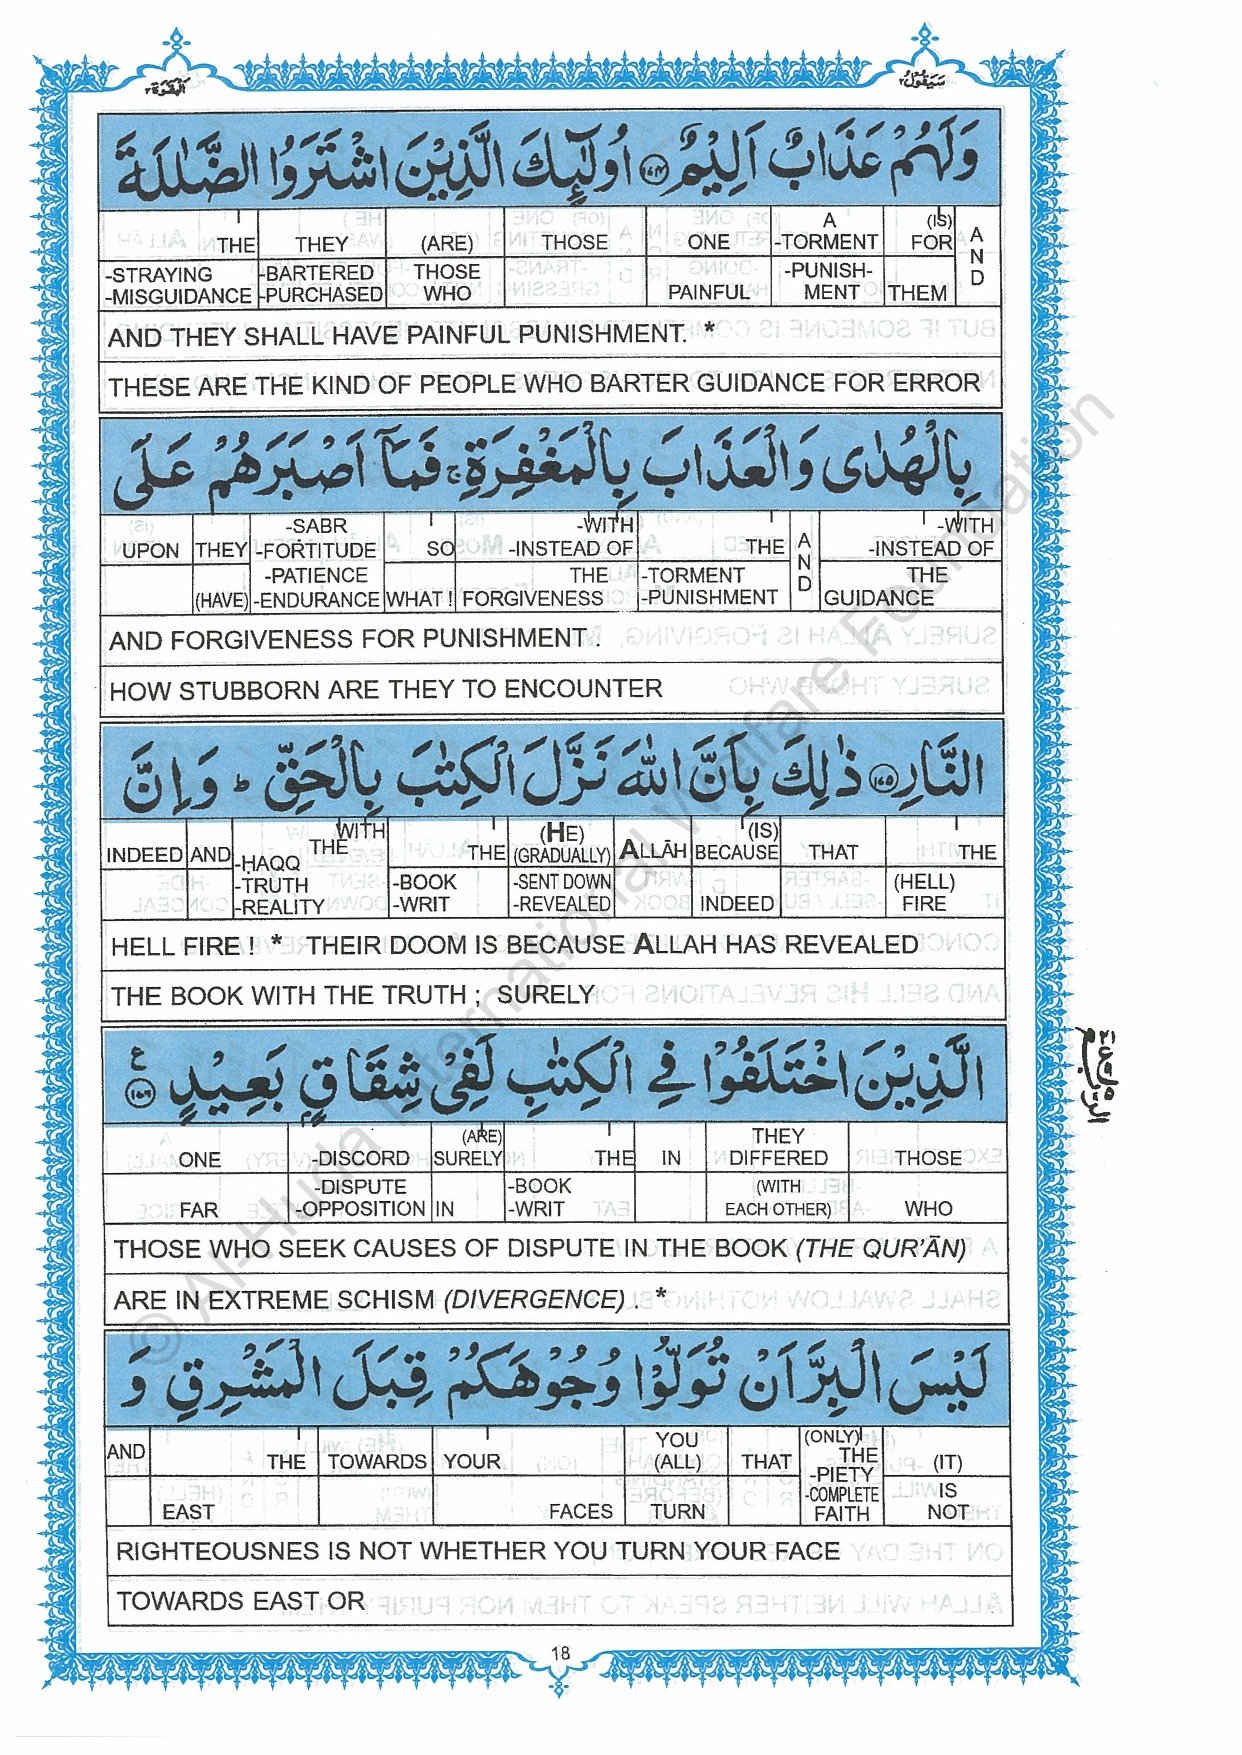 البقرة ٢
سيقول ٢
وَلَهُمْ عَذَابٌ اَلِيْمٌ ﴿١٧٤﴾ اُولٰٓئِكَ الَّذِيْنَ اشْتَرَوُا الضَّلٰلَةَ
THE THEY (ARE) THOSE ONE A -TORMENT (IS) FOR AND
-STRAYING -MISGUIDANCE -BARTERED -PURCHASED THOSE WHO PAINFUL -PUNISH-MENT THEM
AND THEY SHALL HAVE PAINFUL PUNISHMENT. *
THESE ARE THE KIND OF PEOPLE WHO BARTER GUIDANCE FOR ERROR
بِالْهُدٰى وَالْعَذَابَ بِالْمَغْفِرَةِ ۚ فَمَآ اَصْبَرَهُمْ عَلَى
UPON THEY -SABR -FORTITUDE SO -WITH -INSTEAD OF THE AND -WITH -INSTEAD OF
(HAVE) -PATIENCE -ENDURANCE WHAT ! THE FORGIVENESS -TORMENT -PUNISHMENT THE GUIDANCE
AND FORGIVENESS FOR PUNISHMENT .
HOW STUBBORN ARE THEY TO ENCOUNTER
النَّارِ ﴿١٧٥﴾ ذٰلِكَ بِاَنَّ اللّٰهَ نَزَّلَ الْكِتٰبَ بِالْحَقِّ ؕ وَاِنَّ
INDEED AND WITH THE THE (HE) (GRADUALLY) ALLĀH (IS) BECAUSE THAT THE
-ḤAQQ -TRUTH -REALITY -BOOK -WRIT -SENT DOWN -REVEALED INDEED (HELL) FIRE
HELL FIRE ! * THEIR DOOM IS BECAUSE ALLAH HAS REVEALED
THE BOOK WITH THE TRUTH ; SURELY
الَّذِيْنَ اخْتَلَفُوْا فِي الْكِتٰبِ لَفِيْ شِقَاقٍۭ بَعِيْدٍ ﴿١٧٦﴾ ع
ONE -DISCORD (ARE) SURELY THE IN THEY DIFFERED THOSE
FAR -DISPUTE -OPPOSITION IN -BOOK -WRIT (WITH EACH OTHER) WHO
THOSE WHO SEEK CAUSES OF DISPUTE IN THE BOOK (THE QUR'ĀN)
ARE IN EXTREME SCHISM (DIVERGENCE) . *
لَيْسَ الْبِرَّ اَنْ تُوَلُّوْا وُجُوْهَكُمْ قِبَلَ الْمَشْرِقِ وَ
AND THE TOWARDS YOUR YOU (ALL) THAT (ONLY) THE -PIETY (IT)
EAST FACES TURN -COMPLETE FAITH IS NOT
RIGHTEOUSNES IS NOT WHETHER YOU TURN YOUR FACE
TOWARDS EAST OR
18
© Al-Huda International Welfare Foundation